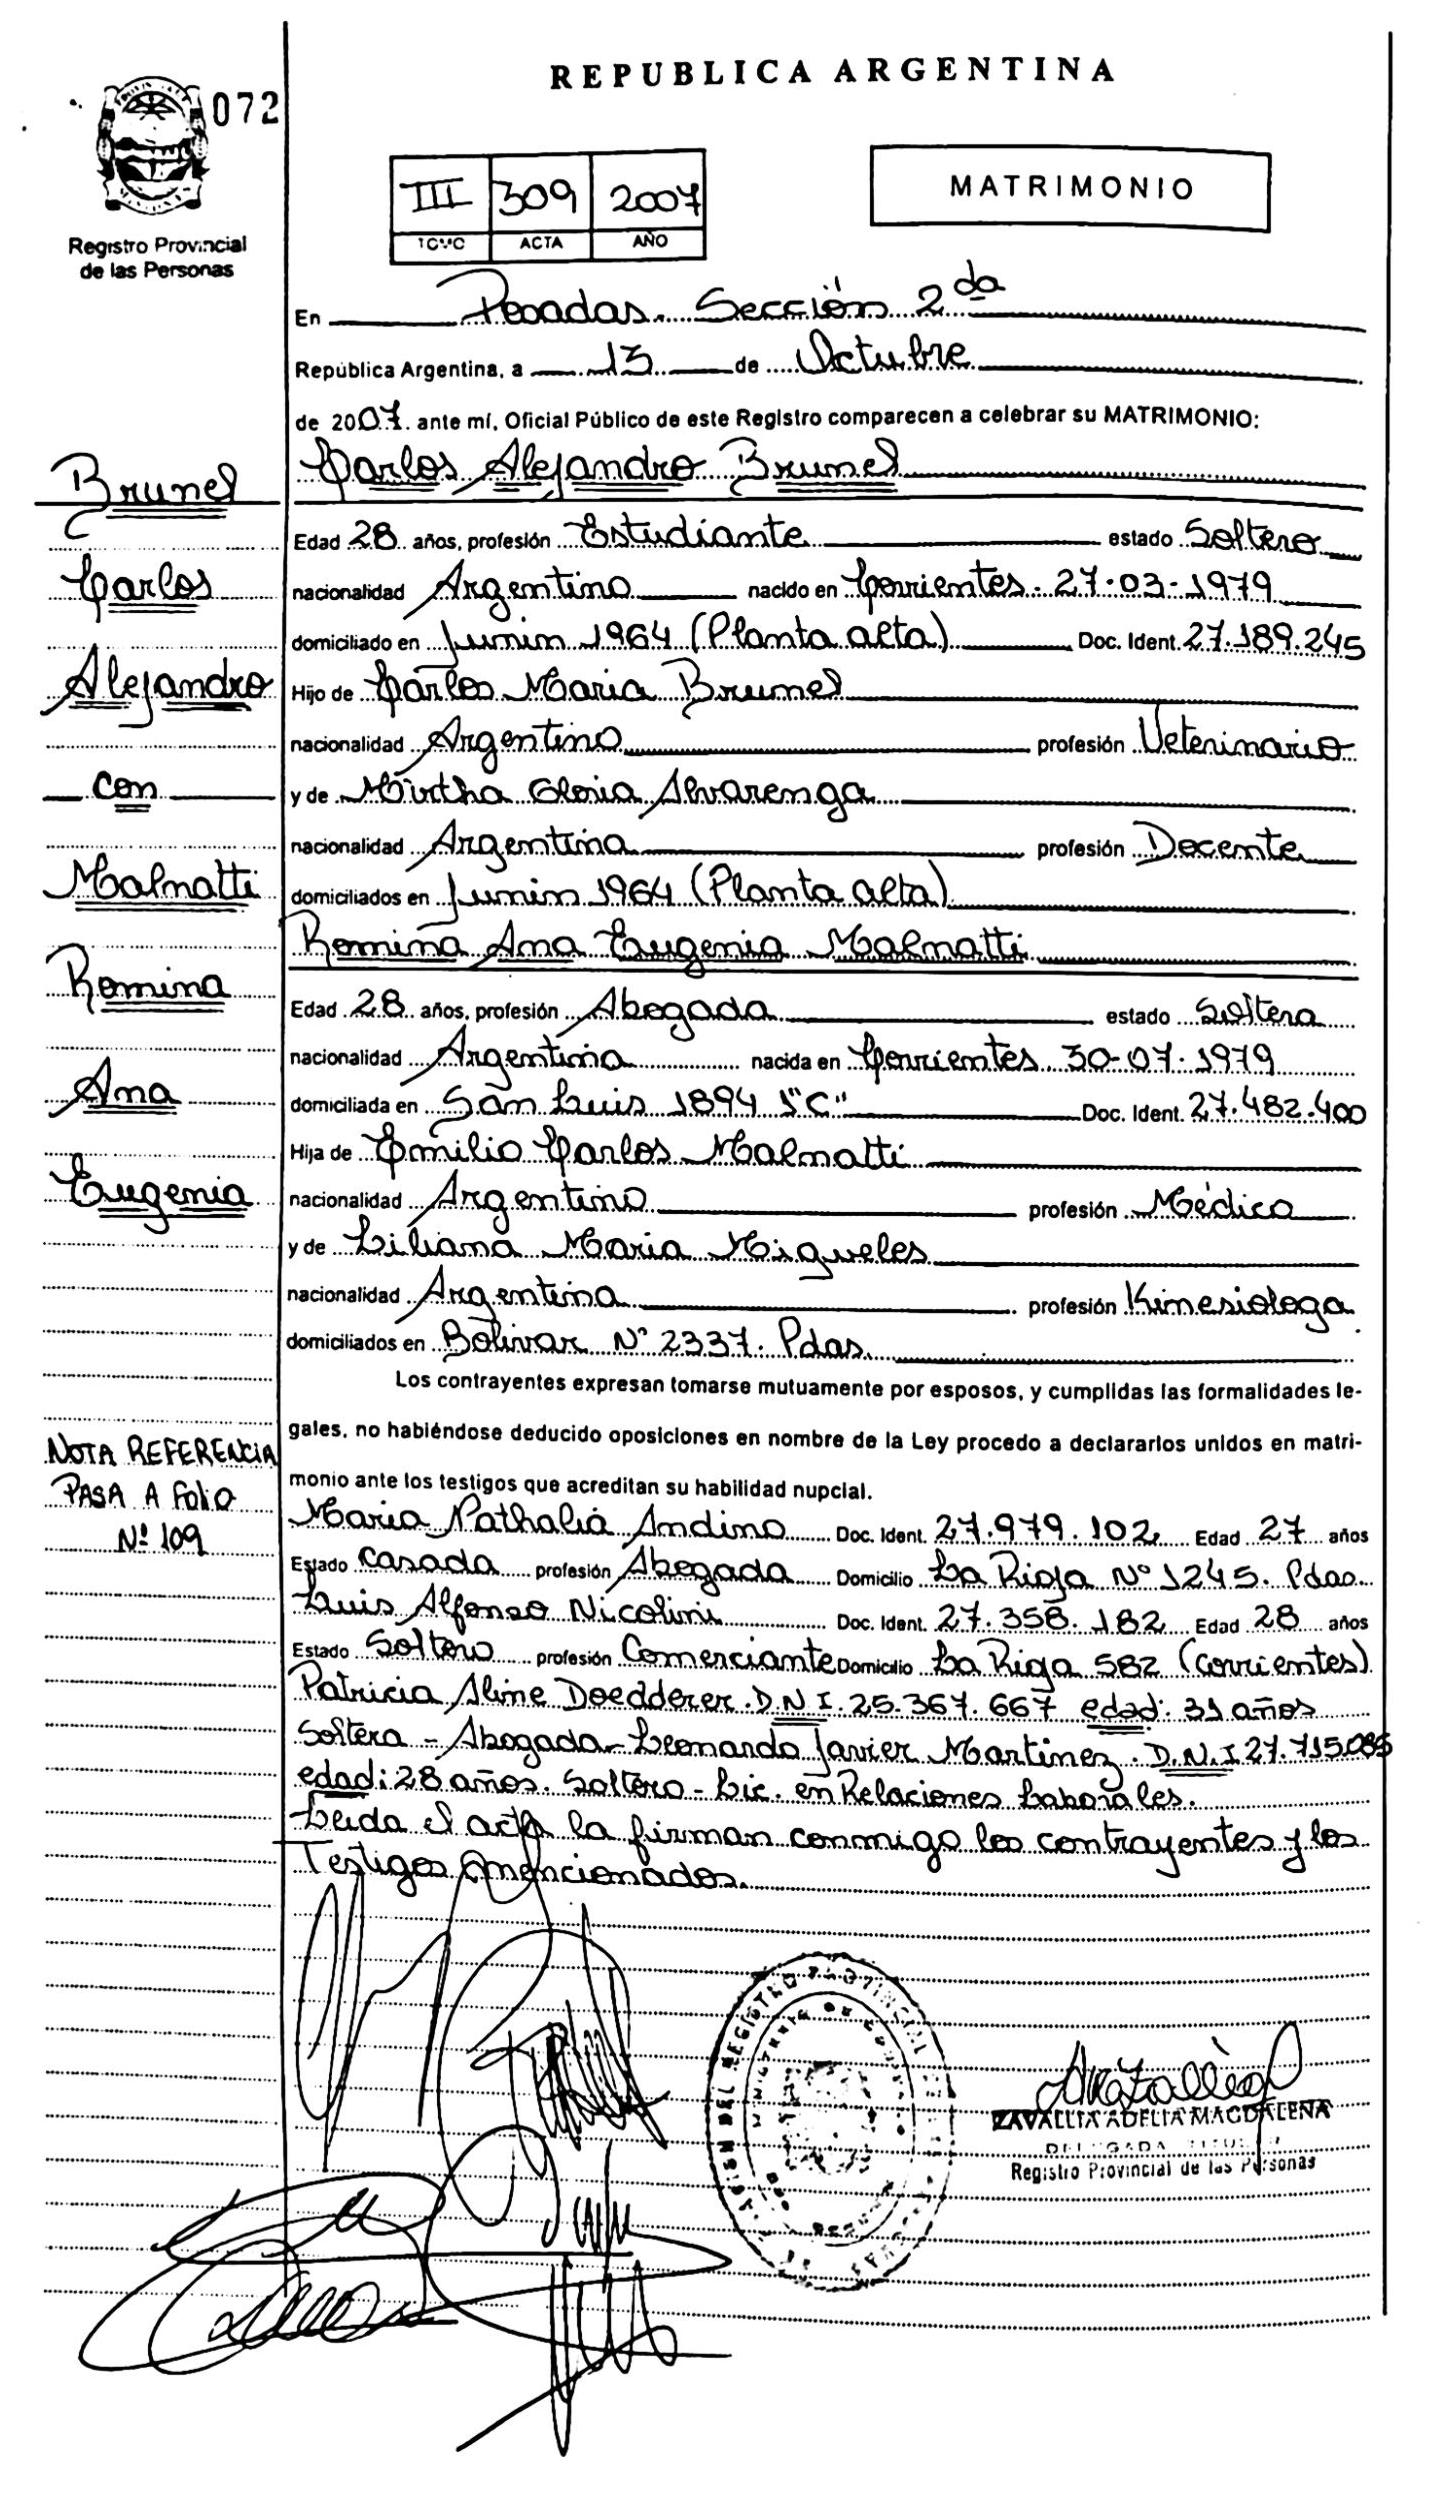 REPUBLICA ARGENTINA
072
Registro Provincial
de las Personas
III 309 2007
TOMO ACTA AÑO
MATRIMONIO
En Posadas. Sección 2da
República Argentina, a 13 de Octubre
de 2007. ante mí, Oficial Público de este Registro comparecen a celebrar su MATRIMONIO:
Brunel
Carlos
Alejandro
con
Malnatti
Romina
Ana
Eugenia
NOTA REFERENCIA
PASA A FOLIO
Nº 109
Carlos Alejandro Brunel
Edad 28 años, profesión Estudiante estado Soltero
nacionalidad Argentino nacido en Corrientes. 27-03-1979
domiciliado en Junin 1964 (Planta alta) Doc. Ident. 27.189.245
Hijo de Carlos Maria Brunel
nacionalidad Argentino profesión Veterinario
y de Mirtha Gloria Alvarenga
nacionalidad Argentina profesión Docente
domiciliados en Junin 1964 (Planta alta)
Romina Ana Eugenia Malnatti
Edad 28 años, profesión Abogada estado Soltera
nacionalidad Argentina nacida en Corrientes 30-07-1979
domiciliada en San Luis 1894 1"C" Doc. Ident. 27.482.400
Hija de Emilio Carlos Malnatti
nacionalidad Argentino profesión Médico
y de Liliana Maria Migueles
nacionalidad Argentina profesión Kinesiologa
domiciliados en Bolivar Nº 2337. Pdas.
Los contrayentes expresan tomarse mutuamente por esposos, y cumplidas las formalidades le-
gales, no habiéndose deducido oposiciones en nombre de la Ley procedo a declararlos unidos en matri-
monio ante los testigos que acreditan su habilidad nupcial.
Maria Nathalia Andino Doc. Ident. 27.979.102 Edad 27 años
Estado casada profesión Abogada Domicilio La Rioja Nº 1245. Pdas.
Luis Alfonso Nicolini Doc. Ident. 27.358.182 Edad 28 años
Estado Soltero profesión Comerciante Domicilio La Rioja 582 (Corrientes)
Patricia Aline Doedderer. D.N.I. 25.367.667 edad: 31 años
Soltera - Abogada - Leonardo Javier Martinez. D.N.I 27.715.085
edad: 28 años. Soltero - Lic. en Relaciones Laborales.
Leida el acta la firman conmigo los contrayentes y los
Testigos mencionados.
ZAVALLIA ADELIA MAGDALENA
DELEGADA TITULAR
Registro Provincial de las Personas